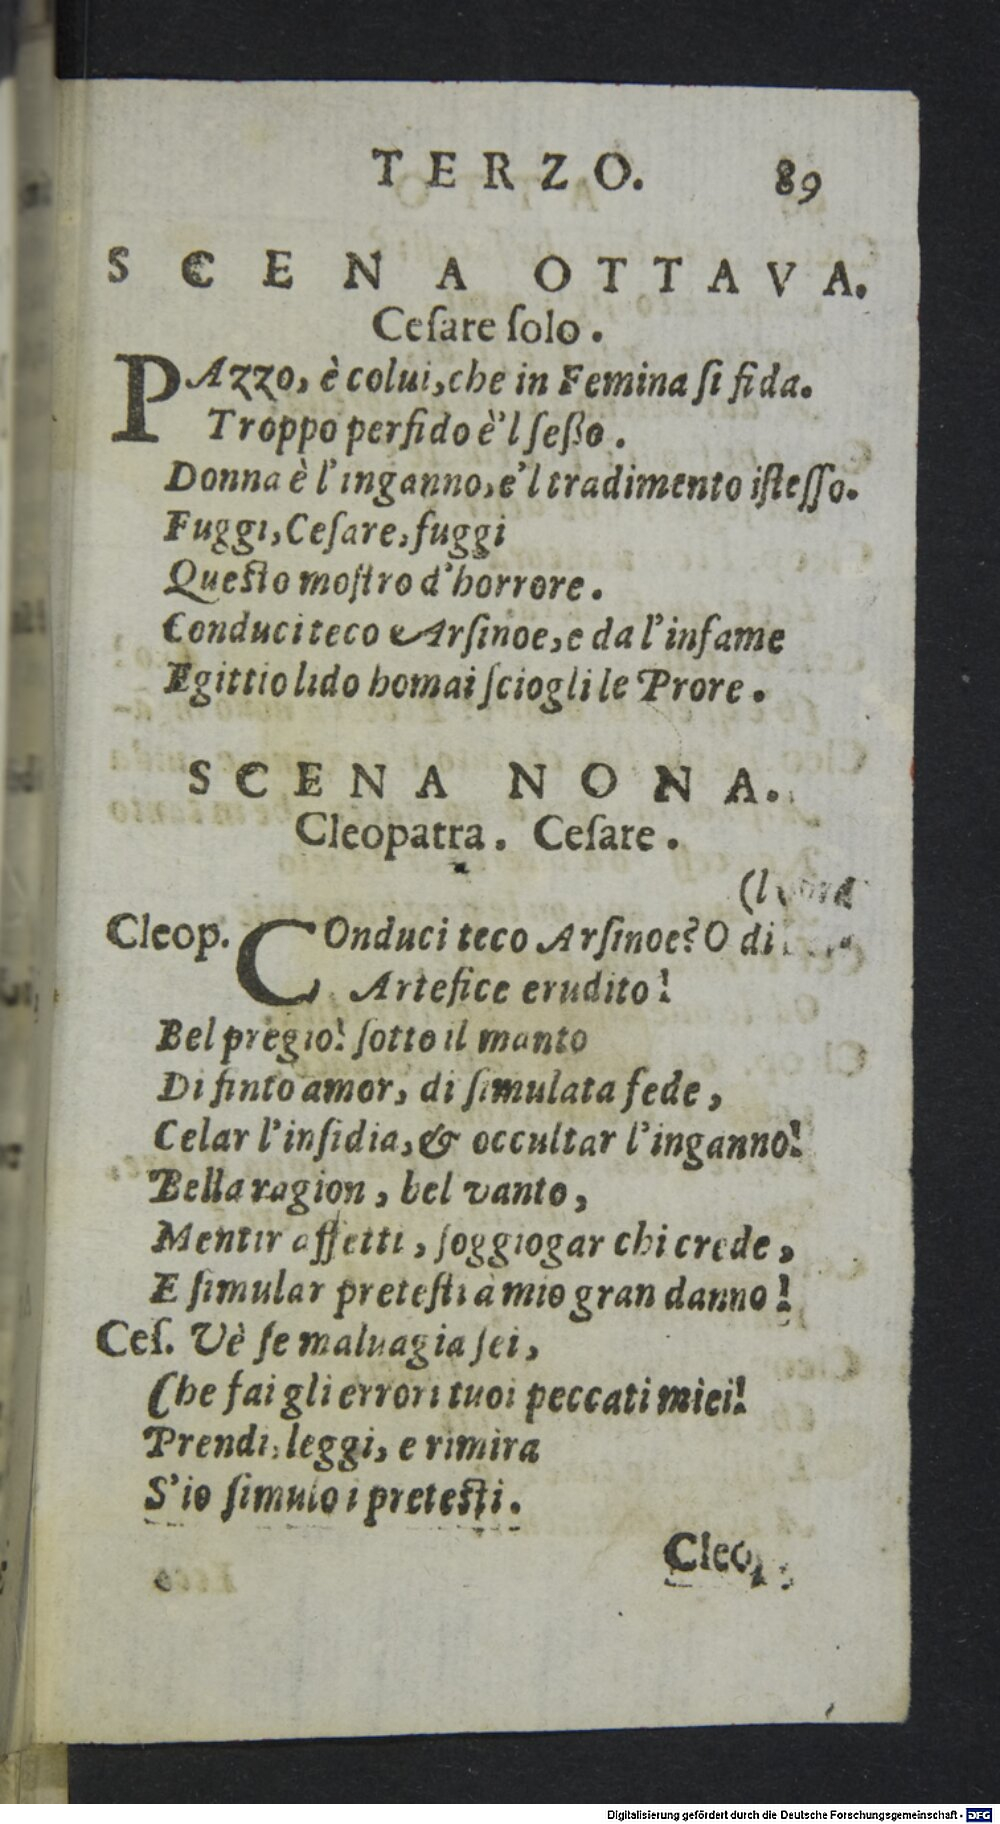 TERZO. 89
SCENA OTTAVA.
Ceſare ſolo.
PAzzo, è colui, che in Femina ſi fida.
Troppo perfido è'l ſeßo.
Donna è l'inganno, e'l tradimento iſteſſo.
Fuggi, Ceſare, fuggi
Queſto moſtro d'horrore.
Conduci teco Arſinoe, e da l'infame
Egittio lido homai ſciogli le Prore.
SCENA NONA.
Cleopatra. Ceſare.
Cleop. COnduci teco Arſinoe? O di
Artefice erudito!
Bel pregio! ſotto il manto
Di finto amor, di ſimulata fede,
Celar l'inſidia, & occultar l'inganno!
Bella ragion, bel vanto,
Mentir affetti, ſoggiogar chi crede,
E ſimular preteſti à mio gran danno!
Ceſ. Vè ſe maluagia ſei,
Che fai gli errori tuoi peccati miei!
Prendi, leggi, e rimira
S'io ſimulo i preteſti.
Cleop.
Digitalisierung gefördert durch die Deutsche Forschungsgemeinschaft - DFG